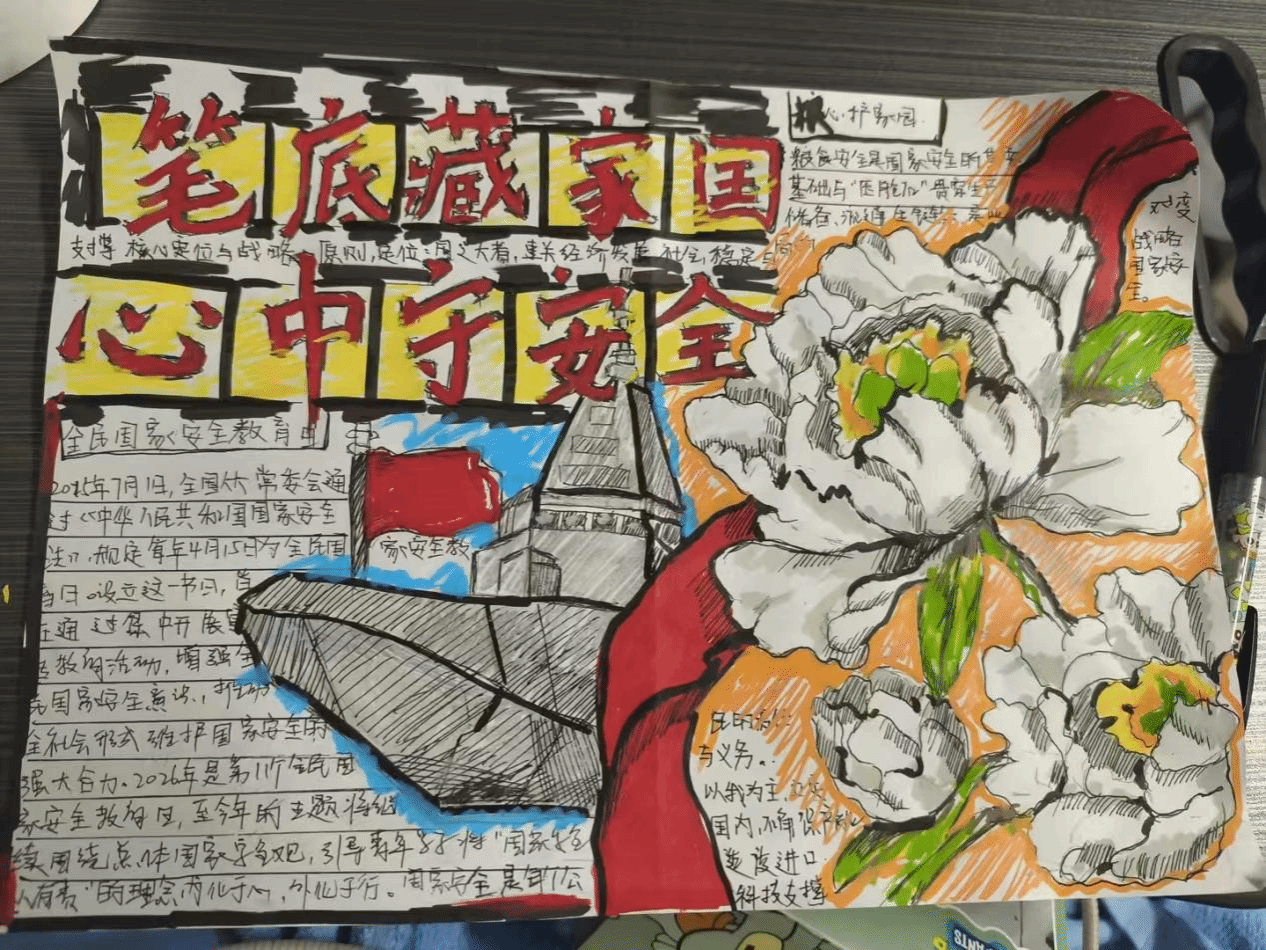 笔底藏家国
支撑核心定位与战略 原则,定位:国之大者,事关经济发展 社会,稳定
心中守安全
全民国家安全教育日
2015年7月1日,全国人大常委会通
过《中华人民共和国国家安全
法》,规定每年4月15日为全民国
家安全教
育日。设立这一节日,旨
在通过集中开展
教育活动,增强全
民国家安全意识,推动
全社会形成维护国家安全的
强大合力。2026年是第11个全民国
家安全教育日,至今年的主题将继
续围绕总体国家安全观,引导青年学子将"国家安全
人有责"的理念内化于心,外化于行。国家安全是每个公
民的
与义务。
核心护家园
粮食安全是国家安全的
基础与"压舱石"贯穿生产
储备、流通
对变
战略
国家安
全。
以我为主,立足
国内,确保
适度进口
科技支撑